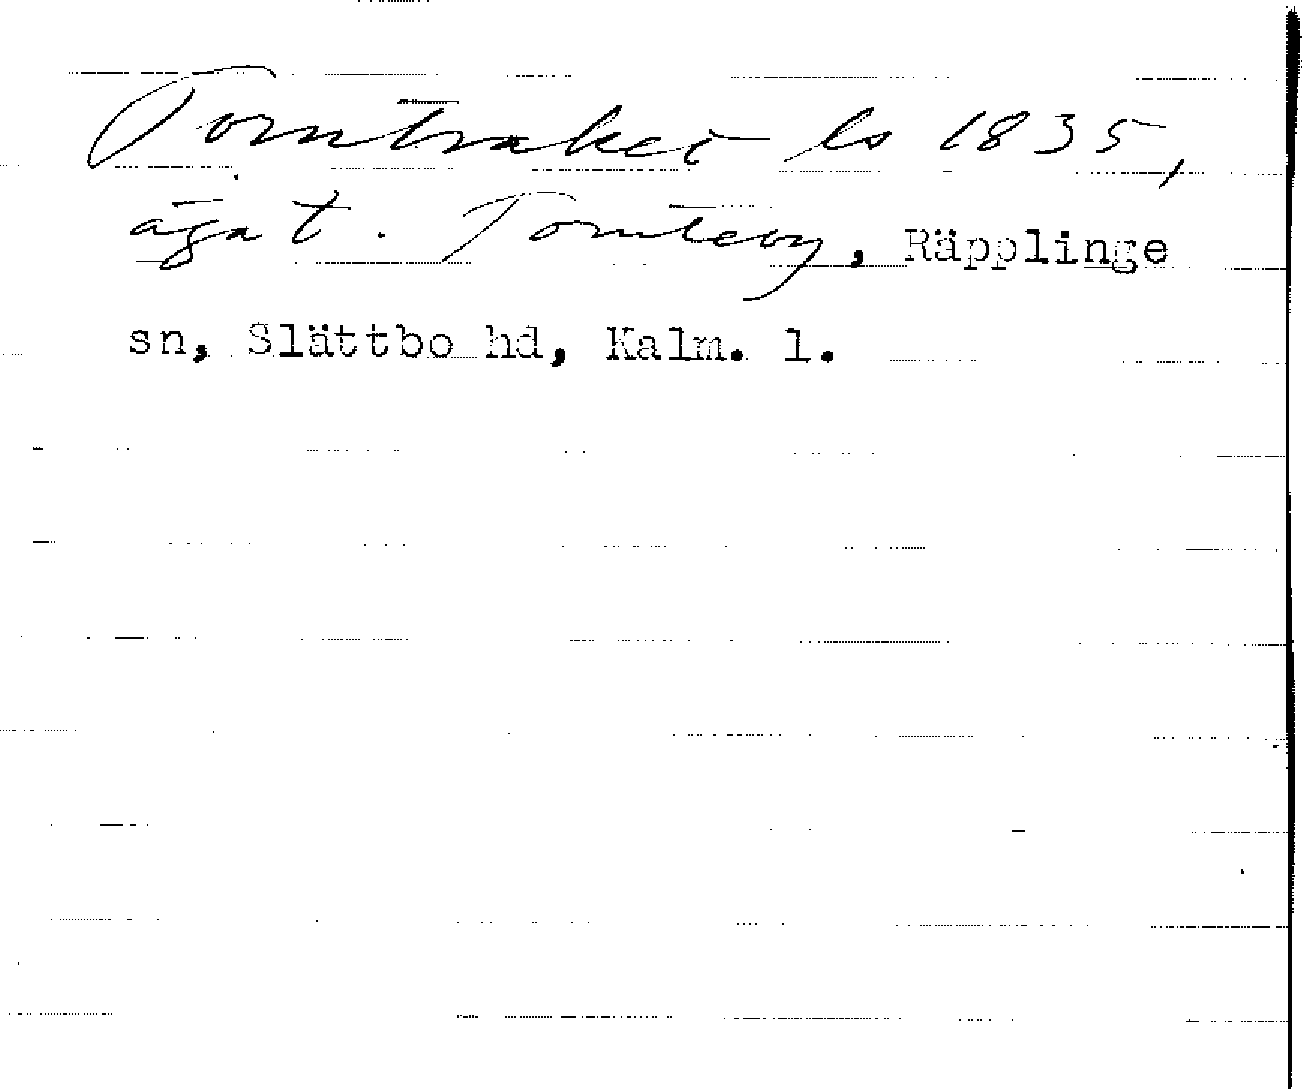 Tomtraket ls 1835,
äga t. Tomteby, Räpplinge
sn, Slättbo hd, Kalm. l.